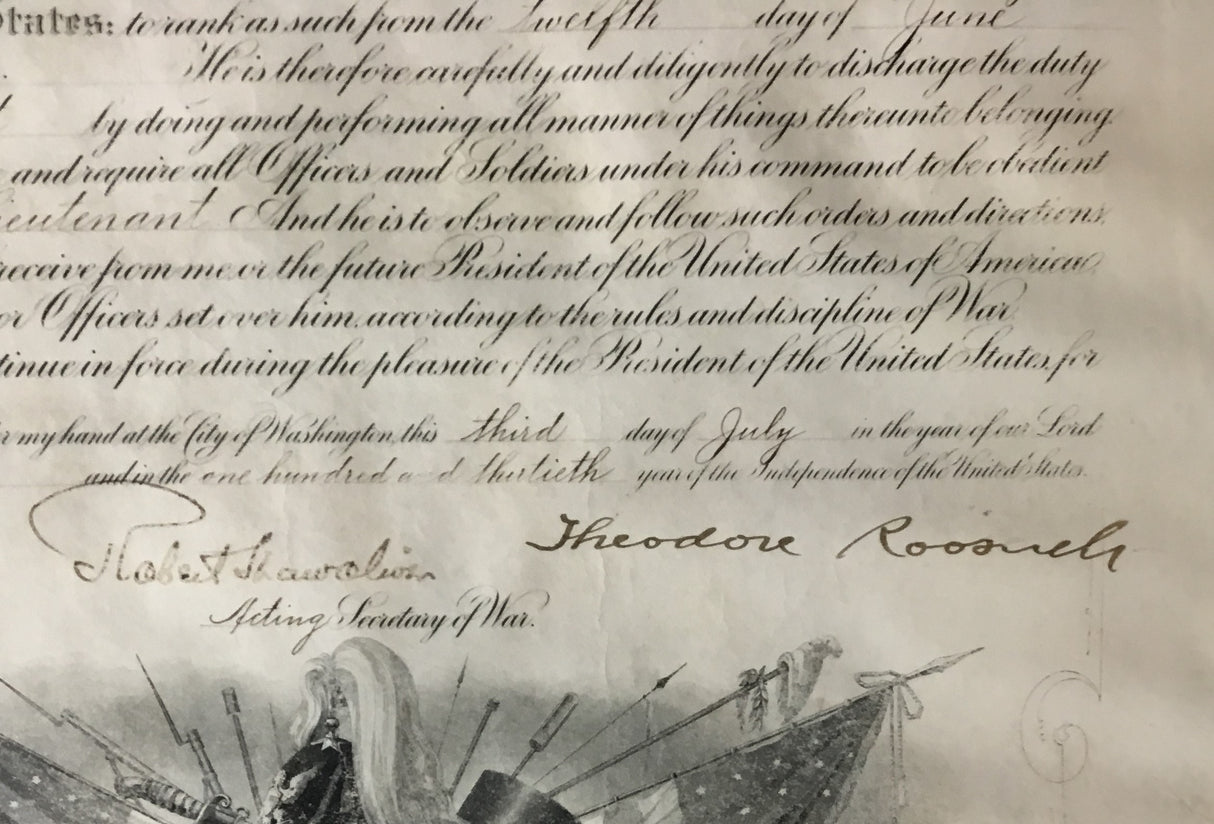 States: to rank as such from the twelfth day of June
He is therefore carefully and diligently to discharge the duty
by doing and performing all manner of things thereunto belonging.
and require all Officers and Soldiers under his command to be obedient
ieutenant And he is to observe and follow such orders and directions,
receive from me, or the future President of the United States of America,
or Officers set over him, according to the rules and discipline of War
tinue in force during the pleasure of the President of the United States, for
my hand at the City of Washington, this third day of July in the year of our Lord
and in the one hundred and thirtieth year of the Independence of the United States.
Theodore Roosevelt
Robert Shaw Oliver
Acting Secretary of War.